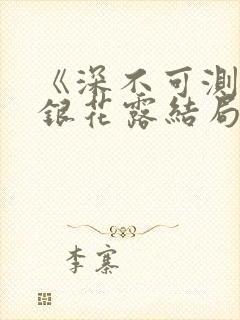 《深不可测
銀花露結局
李寨